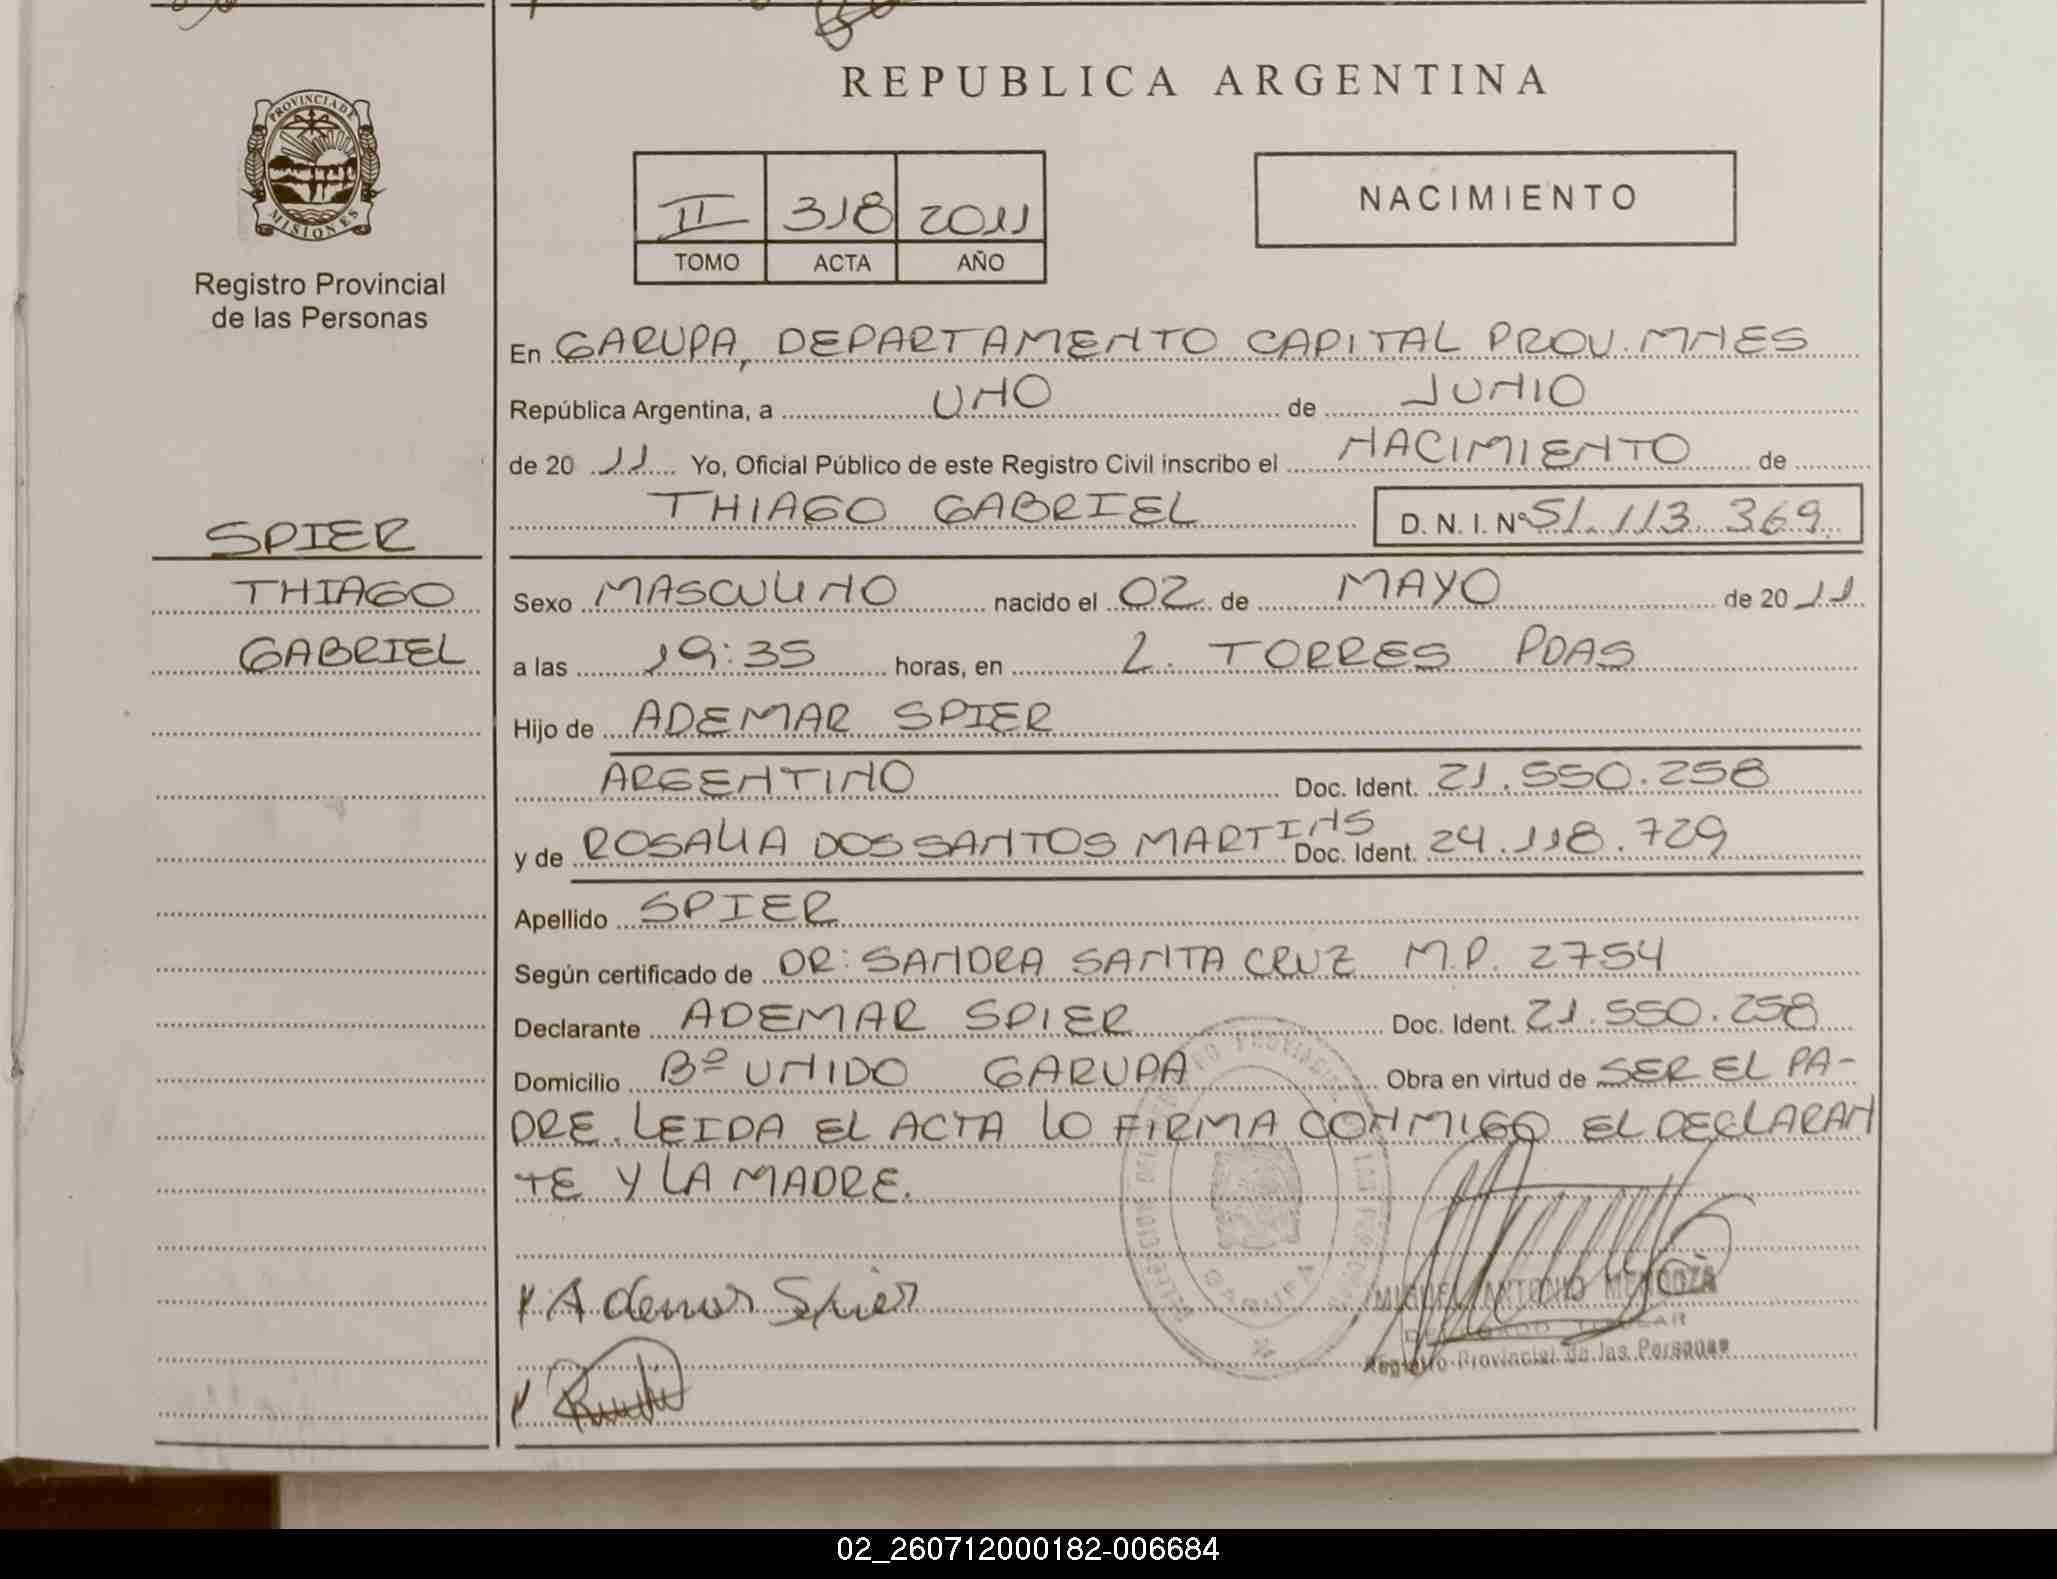 REPUBLICA ARGENTINA
PROVINCIA DE MISIONES
Registro Provincial
de las Personas
II 318 2011
TOMO ACTA AÑO
NACIMIENTO
En GARUPA, DEPARTAMENTO CAPITAL PROV. MNES
República Argentina, a UNO de JUNIO
de 20 11 Yo, Oficial Público de este Registro Civil inscribo el NACIMIENTO de
THIAGO GABRIEL D. N. I. Nº 51.113.369
SPIER
THIAGO
GABRIEL
Sexo MASCULINO nacido el 02 de MAYO de 20 11
a las 19:35 horas, en L. TORRES PDAS
Hijo de ADEMAR SPIER
ARGENTINO Doc. Ident. 21.550.258
y de ROSALIA DOS SANTOS MARTINS Doc. Ident. 24.118.729
Apellido SPIER
Según certificado de DR: SANDRA SANTA CRUZ M.P. 2754
Declarante ADEMAR SPIER Doc. Ident. 21.550.258
Domicilio Bº UNIDO GARUPA Obra en virtud de SER EL PA-
DRE. LEIDA EL ACTA LO FIRMA CONMIGO EL DECLARAN
TE Y LA MADRE.
Ademar Spier
MIGUEL ANTONIO MENDOZA
DELEGADO TITULAR
Registro Provincial de las Personas
GARUPA
02_260712000182-006684